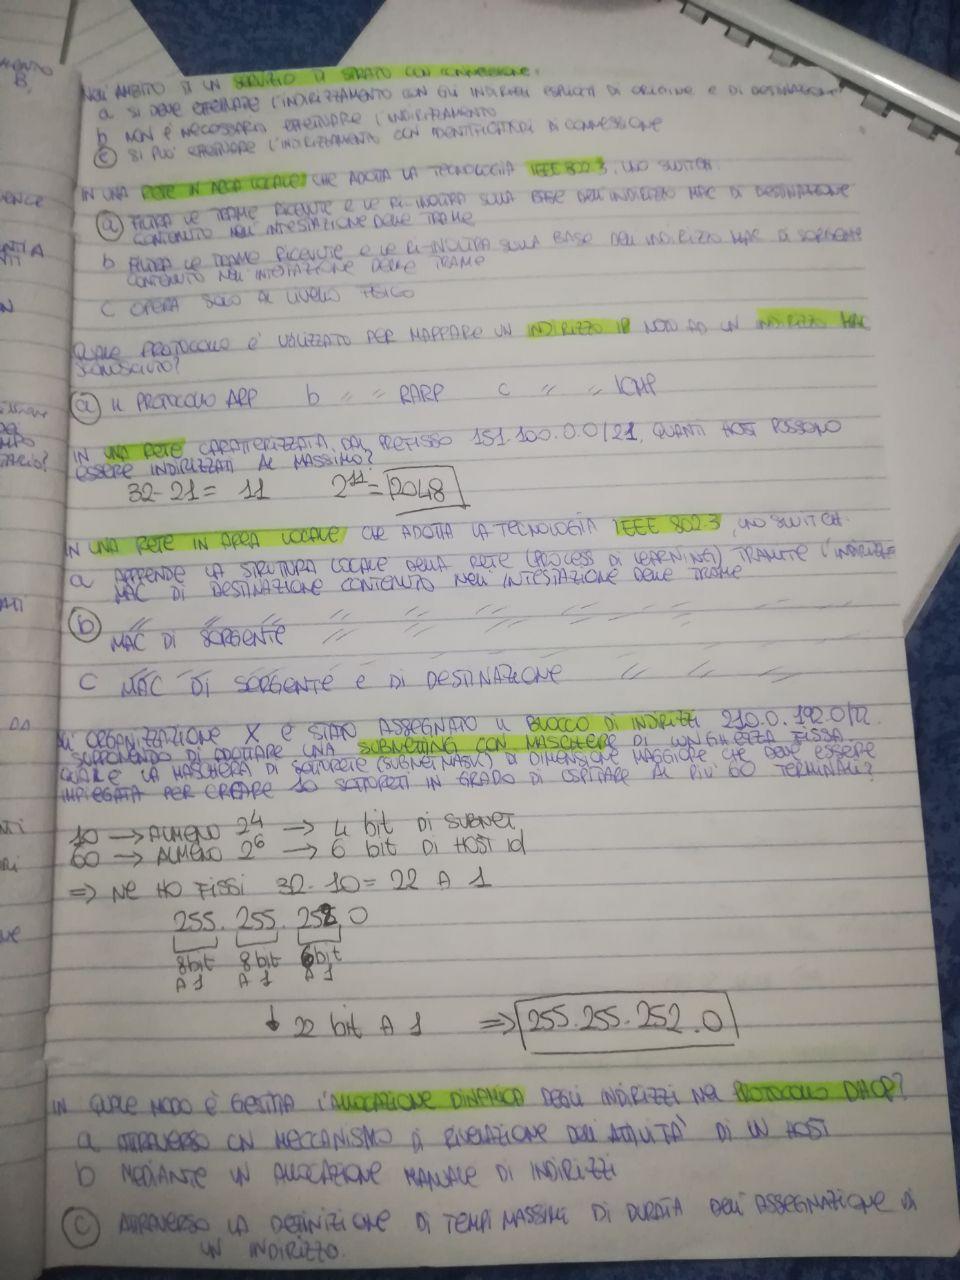 NELL'AMBITO DI UN SERVIZIO DI STRATO CON CONNESSIONE:
a SI DEVE EFFETTUARE L'INDIRIZZAMENTO CON GLI INDIRIZZI ESPLICITI DI ORIGINE E DI DESTINAZIONE
b NON È NECESSARIO EFFETTUARE L'INDIRIZZAMENTO
c SI PUÒ EFFETTUARE L'INDIRIZZAMENTO CON IDENTIFICATORI DI CONNESSIONE
IN UNA RETE IN AREA LOCALE, CHE ADOTTA LA TECNOLOGIA IEEE 802.3, UNO SWITCH:
a FILTRA LE TRAME RICEVUTE E LE RI-INOLTRA SULLA BASE DELL'INDIRIZZO MAC DI DESTINAZIONE
CONTENUTO NELL'INTESTAZIONE DELLE TRAME
b FILTRA LE TRAME RICEVUTE E LE RI-INOLTRA SULLA BASE DELL'INDIRIZZO MAC DI SORGENTE
CONTENUTO NELL'INTESTAZIONE DELLE TRAME
C OPERA SOLO AL LIVELLO FISICO
QUALE PROTOCOLLO È UTILIZZATO PER MAPPARE UN INDIRIZZO IP NOTO AD UN INDIRIZZO MAC
SCONOSCIUTO?
a IL PROTOCOLLO ARP b " " RARP c " " ICMP
IN UNA RETE CARATTERIZZATA DAL PREFISSO 151.100.0.0/21, QUANTI HOST POSSONO
ESSERE INDIRIZZATI AL MASSIMO?
32-21= 11 2^11= 2048
IN UNA RETE IN AREA LOCALE, CHE ADOTTA LA TECNOLOGIA IEEE 802.3, UNO SWITCH:
a APPRENDE LA STRUTTURA LOCALE DELLA RETE (PROCESS DI LEARNING) TRAMITE L'INDIRIZZO
MAC DI DESTINAZIONE CONTENUTO NELL'INTESTAZIONE DELLE TRAME
b " " " " " " " "
MAC DI SORGENTE " " " "
C MAC DI SORGENTE E DI DESTINAZIONE " " " "
ALL'ORGANIZZAZIONE X È STATO ASSEGNATO IL BLOCCO DI INDIRIZZI 210.0.192.0/22.
SUPPONENDO DI ADOTTARE UNA SUBNETTING CON MASCHERE DI LUNGHEZZA FISSA,
QUALE LA MASCHERA DI SOTTORETE (SUBNET MASK) DI DIMENSIONE MAGGIORE CHE DEVE ESSERE
IMPIEGATA PER CREARE 10 SOTTORETI IN GRADO DI OSPITARE AL PIÙ 60 TERMINALI?
10 → ALMENO 2^4 → 4 bit DI SUBNET
60 → ALMENO 2^6 → 6 bit DI HOST id
⇒ NE HO FISSI 32-10= 22 A 1
255. 255. 252 0
8bit 8bit 6bit
A 1 A 1 A 1
↓ 22 bit A 1 ⇒ 255.255.252.0
IN QUALE MODO È GESTITA L'ALLOCAZIONE DINAMICA DEGLI INDIRIZZI NEL PROTOCOLLO DHCP?
a ATTRAVERSO UN MECCANISMO DI RIVELAZIONE DELL'ATTIVITÀ DI UN HOST
b MEDIANTE UN ALLOCAZIONE MANUALE DI INDIRIZZI
C ATTRAVERSO LA DEFINIZIONE DI TEMPI MASSIMI DI DURATA DELL'ASSEGNAZIONE DI
UN INDIRIZZO.